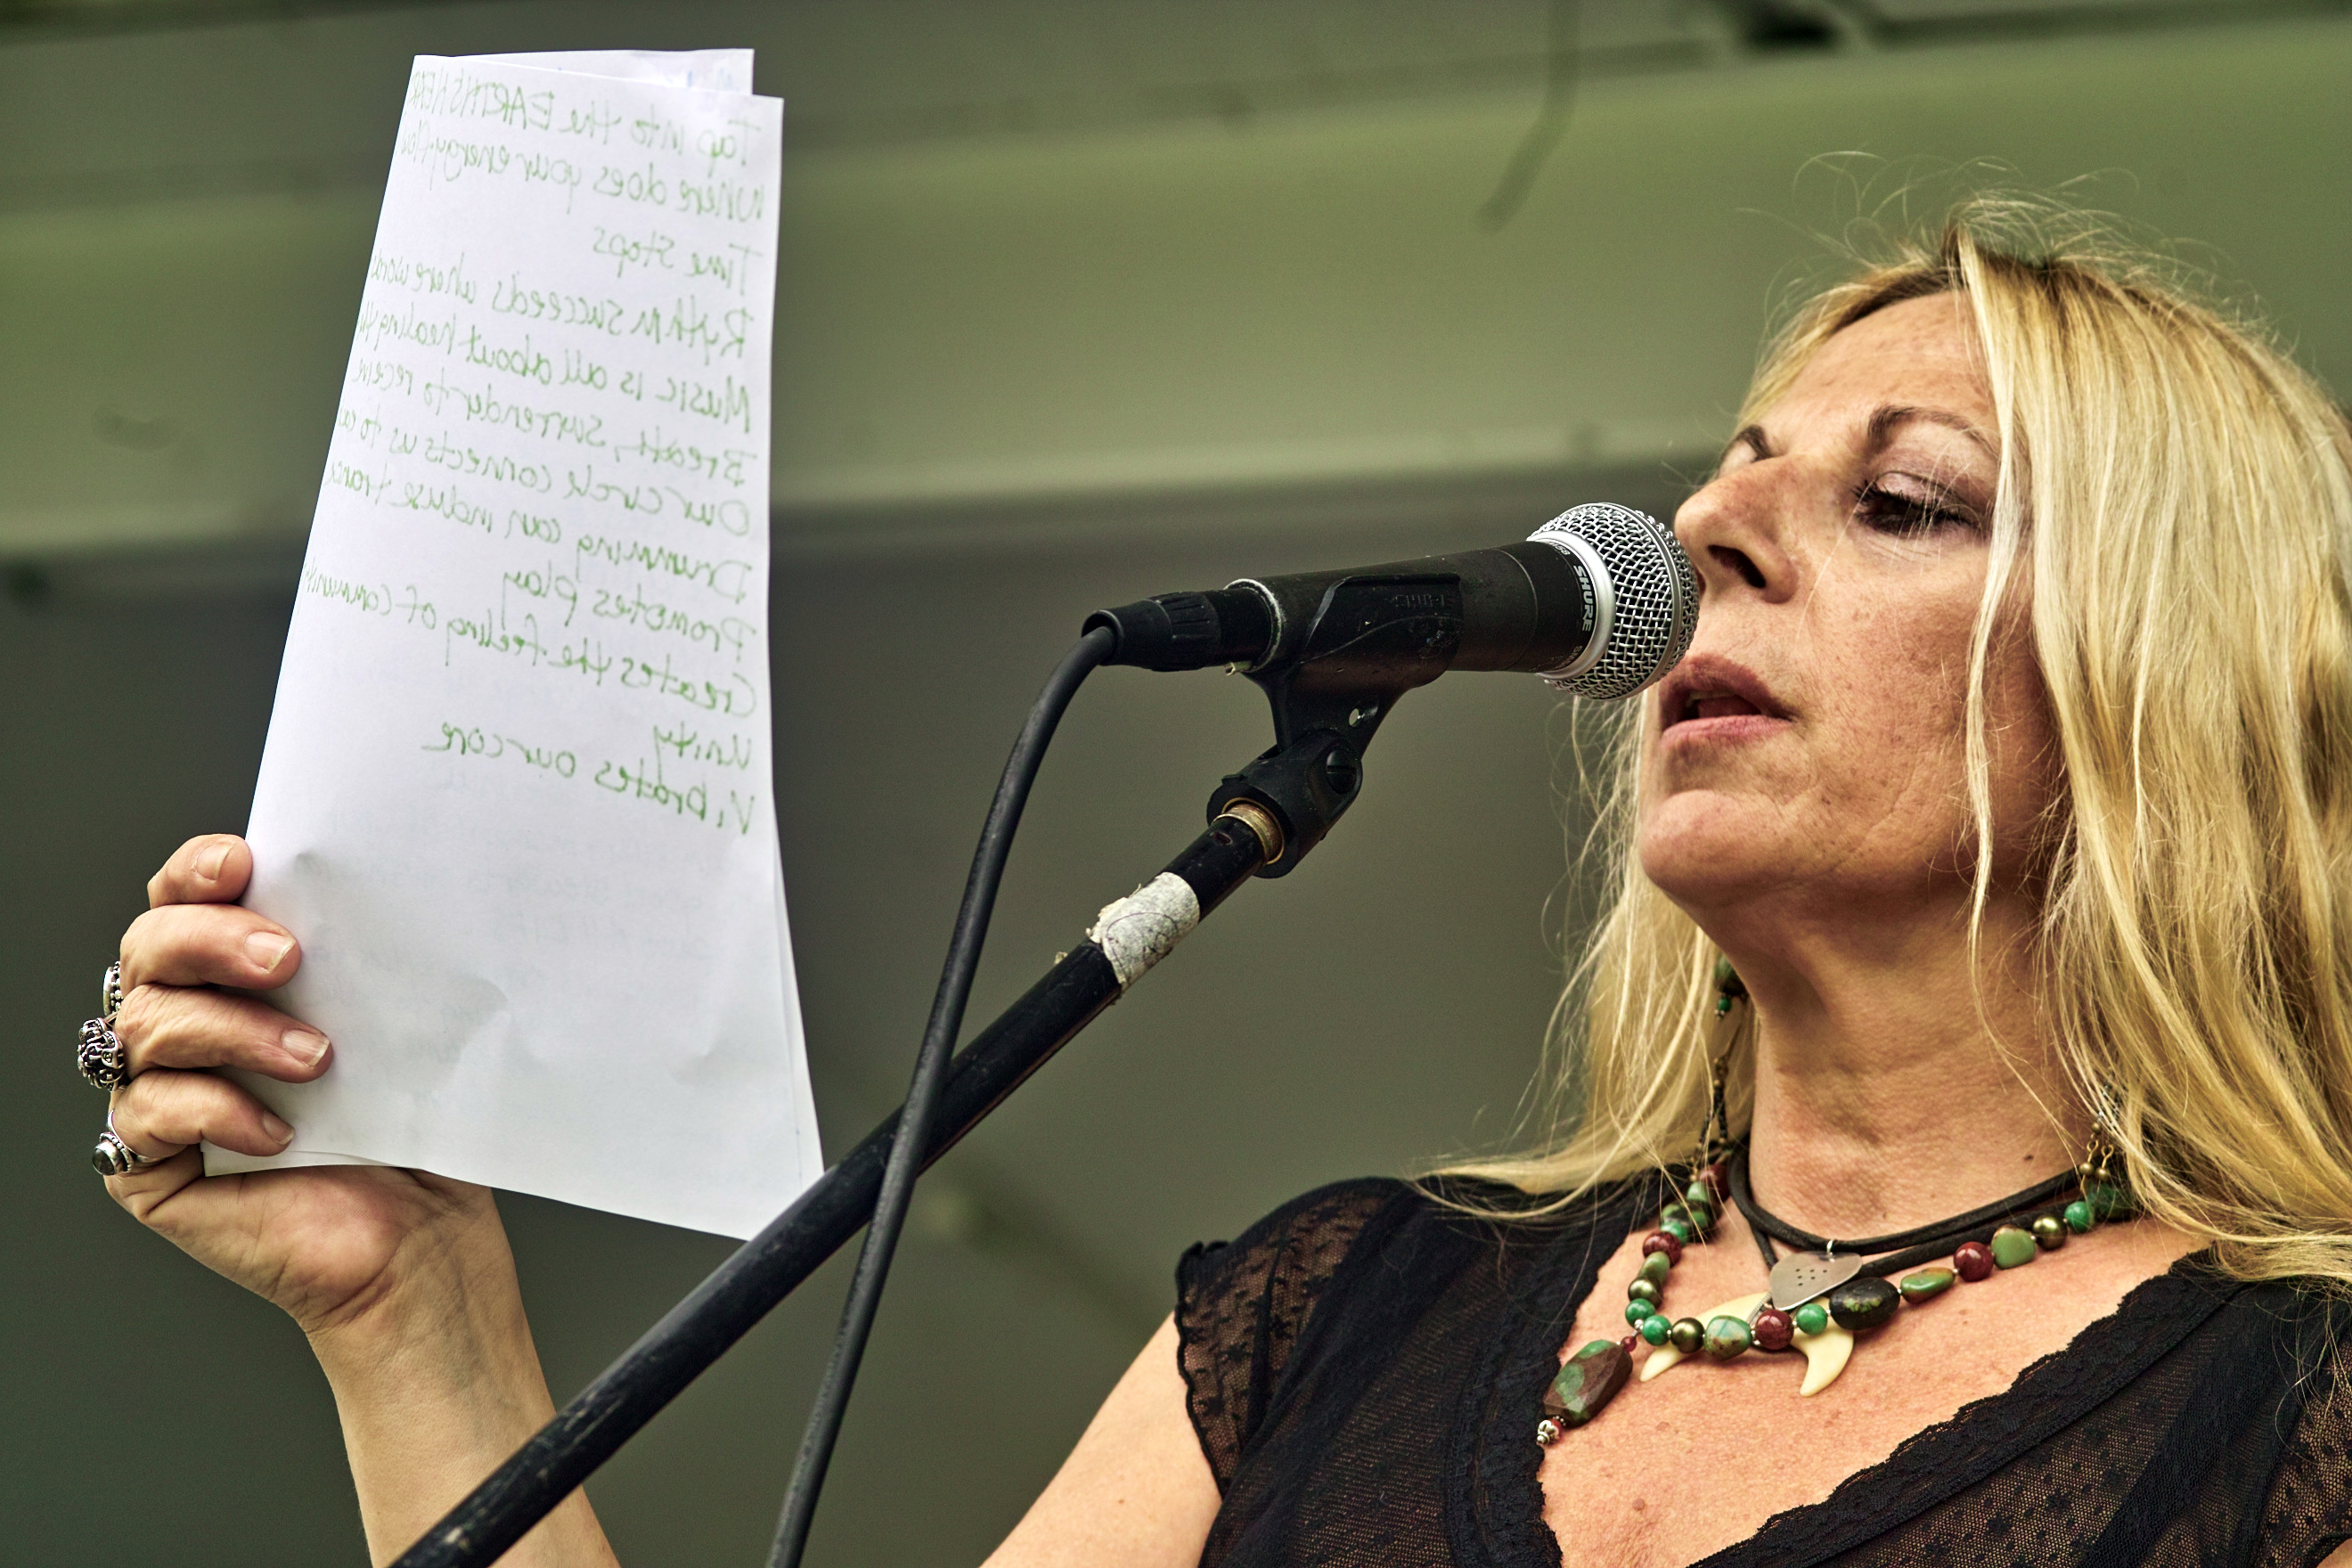 Tap into the EARTH'S HEAR
Where does your energy flo
Time Stops
RytHM succeeds where word
Music is all about healing th
Breath, surrender to receive
Our circle connects us to
Drumming can induse tranc
Promotes play
Creates the feeling of communi
Unity
Vibrates our core
SHURE
SHURE